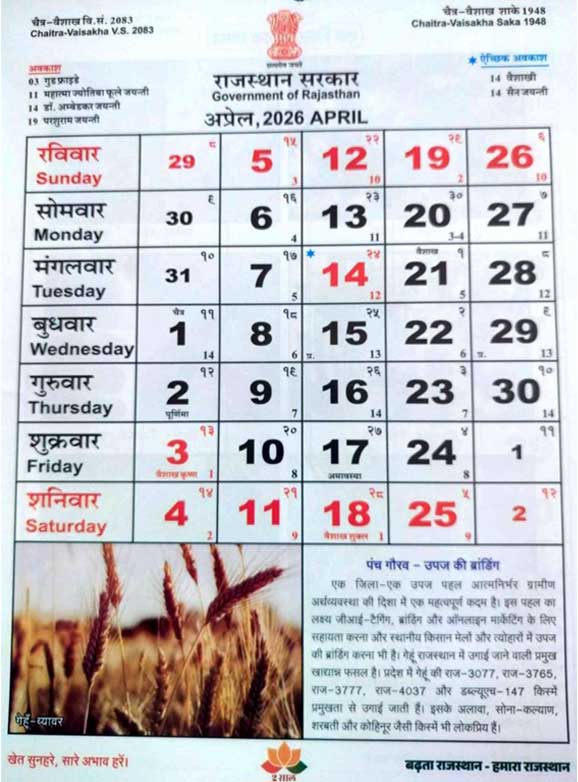 चैत्र-वैशाख वि.सं. 2083
Chaitra-Vaisakha V.S. 2083
चैत्र-वैशाख शाके 1948
Chaitra-Vaisakha Saka 1948
अवकाश
03 गुडफ्राइडे
11 महात्मा ज्योतिबा फूले जयन्ती
14 डॉ. अम्बेडकर जयन्ती
19 परशुराम जयन्ती
सत्यमेव जयते
राजस्थान सरकार
Government of Rajasthan
अप्रेल, 2026 APRIL
* ऐच्छिक अवकाश
14 वैशाखी
14 सैन जयन्ती
रविवार Sunday 29 ८ 5 १५ 3 12 २२ 10 19 २९ 2 26 ६ 10
सोमवार Monday 30 ९ 6 १६ 4 13 २३ 11 20 ३० 3-4 27 ७ 11
मंगलवार Tuesday 31 १० 7 १७ 5 * 14 २४ 12 वैशाख 21 १ 5 28 ८ 12
बुधवार Wednesday चैत्र 1 ११ 14 8 १८ 6 प्र. 15 २५ 13 22 २ 6 प्र. 29 ९ 13
गुरुवार Thursday 2 १२ पूर्णिमा 9 १९ 7 16 २६ 14 23 ३ 7 30 १० 14
शुक्रवार Friday 3 १३ वैशाख कृष्ण 1 10 २० 8 17 २७ अमावस्या 24 ४ 8 1 ११
शनिवार Saturday 4 १४ 2 11 २१ 9 18 २८ वैशाख शुक्ल 1 25 ५ 9 2 १२
गेहूँ-ब्यावर
पंच गौरव – उपज की ब्रांडिंग
एक जिला-एक उपज पहल आत्मनिर्भर ग्रामीण
अर्थव्यवस्था की दिशा में एक महत्वपूर्ण कदम है। इस पहल का
लक्ष्य जीआई-टैगिंग, ब्रांडिंग और ऑनलाइन मार्केटिंग के लिए
सहायता करना और स्थानीय किसान मेलों और त्योहारों में उपज
की ब्रांडिंग करना भी है। गेहूं राजस्थान में उगाई जाने वाली प्रमुख
खाद्यान्न फसल है। प्रदेश में गेहूं की राज-3077, राज-3765,
राज-3777, राज-4037 और डब्ल्यूएच-147 किस्में
प्रमुखता से उगाई जाती हैं। इसके अलावा, सोना-कल्याण,
शरबती और कोहिनूर जैसी किस्में भी लोकप्रिय हैं।
खेत सुनहरे, सारे अभाव हरें।
२ साल
बढ़ता राजस्थान - हमारा राजस्थान